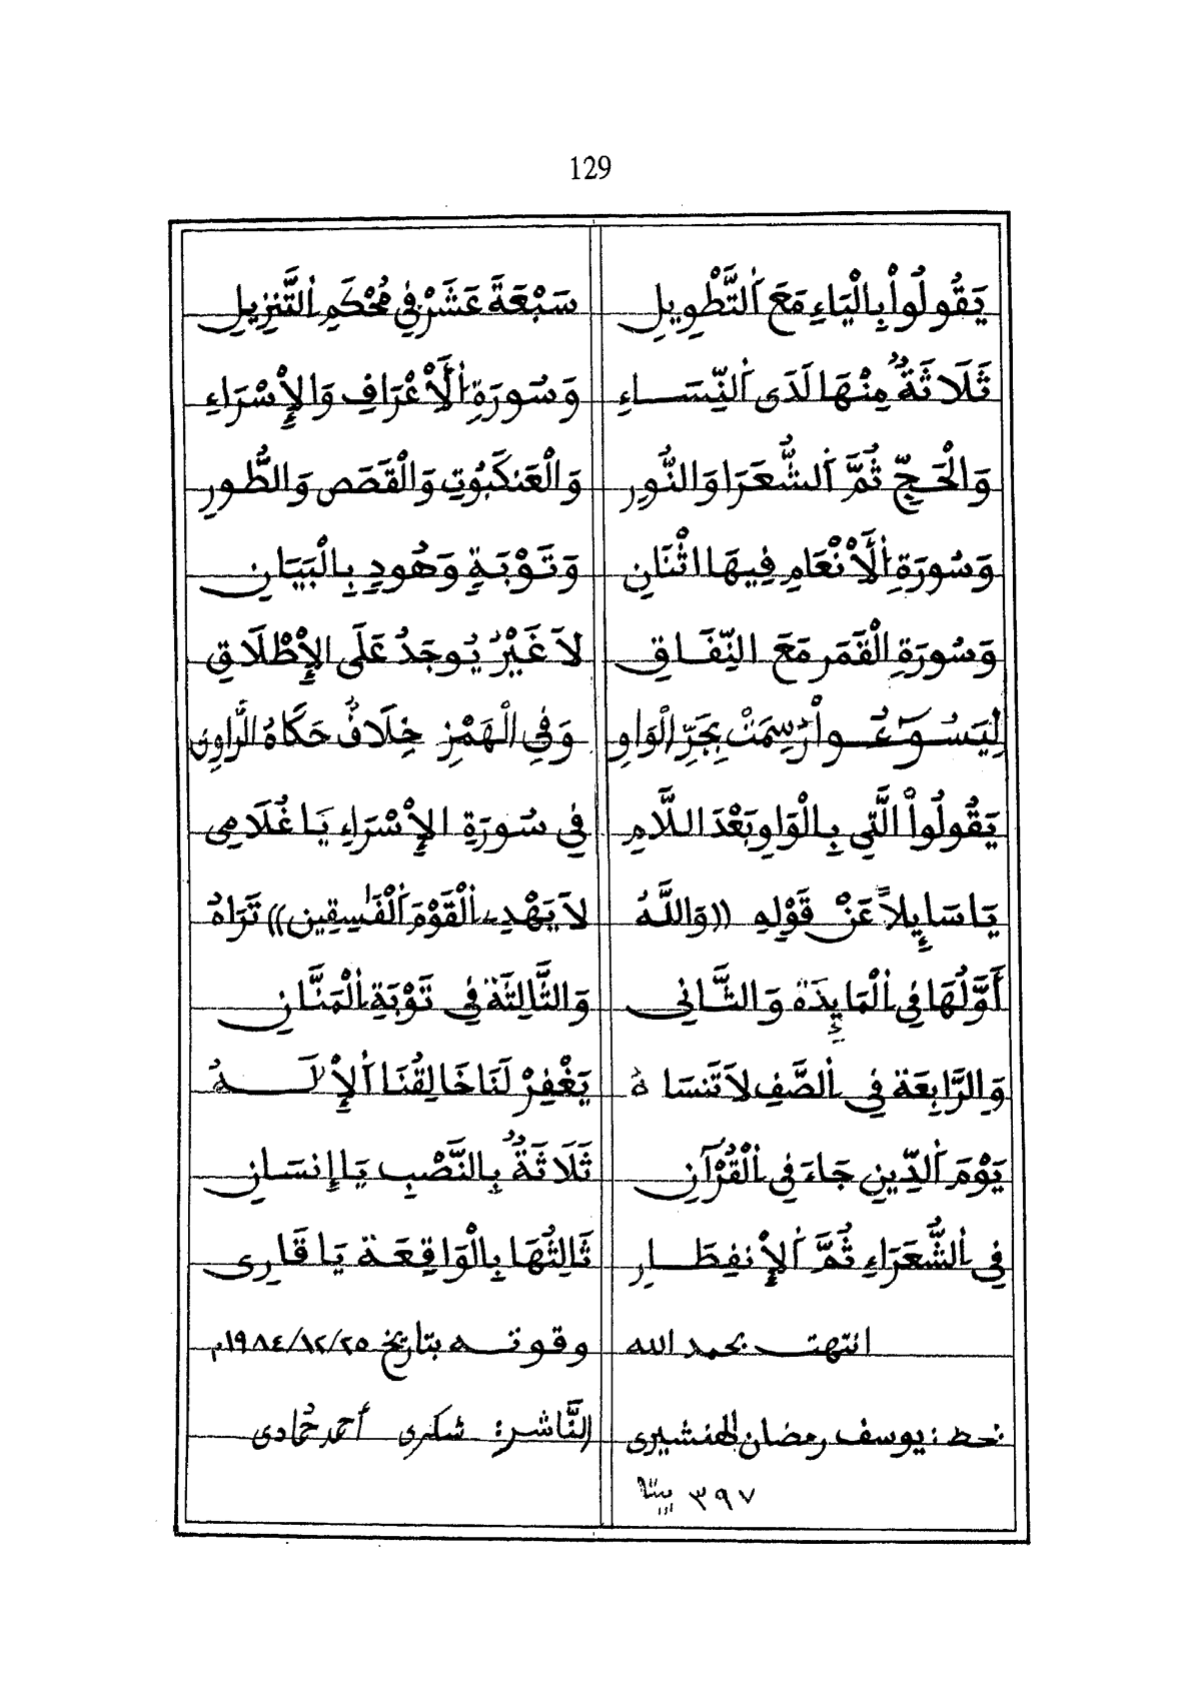 129
يَقُولُواْ بِالْيَاءِ مَعَ اَلتَّطْوِيلِ سَبْعَةَ عَشَرْ فِي مُحْكَمِ اِلتَّنزِيلِ
ثَلَاثَةٌ مِنْهَا لَدَى اَلنِّسَاءِ وَسُورَةِ اِلَأَعْرَافِ وَالإِسْرَاءِ
وَالْحَجِّ ثُمَّ اَلشُّعَرَا وَالنُّورِ وَالْعَنكَبُوتِ وَالْقَصَصِ وَالطُّورِ
وَسُورَةِ اِلَأَنْعَامِ فِيهَا اثْنَانِ وَتَوْبَةٍ وَهُودٍ بِالْبَيَانِ
وَسُورَةِ الْقَمَرِ مَعَ النِّفَاقِ لاَ غَيْرُ يُوجَدُ عَلَى الإِطْلَاقِ
لِيَسُوَءُواْ رُسِمَتْ بِجَرِّ الْوَاوِ وَفِي الْهَمْزِ خِلَافٌ حَكَاهُ الرَّاوِى
يَقُولُواْ الَّتِي بِالْوَاوِ بَعْدَ اللَّامِ فِي سُورَةِ الإِسْرَاءِ يَا غُلَامِى
يَا سَايِلاً عَنْ قَوْلِهِ ((وَاللَّهُ لاَ يَهْدِى اِلْقَوْمَ اَلْفَاسِقِين)) تَرَاهُ
أَوَّلُهَا فِي اِلْمَايِدَة وَالثَّانِى وَالثَّالِثَة فِي تَوْبَةِ اِلْمَنَّانِ
وَالرَّابِعَة فِي اِلصَّفِ لاَ تَنسَاهُ يَغْفِرْ لَنَا خَالِقُنَا اَلإِلَهُ
يَوْمَ اَلدِّينِ جَاءَ فِي اِلْقُرْآنِ ثَلَاثَةٌ بِالنَّصْبِ يَا إِنسَانِ
فِي اِلشُّعَرَاءِ ثُمَّ اَلإِنفِطَارِ ثَالِثُهَا بِالْوَاقِعَة يَا قَارِى
انتهت بحمد الله وقوته بتاريخ ١٩٨٤/١٢/٢٥م
بخط: يوسف رمضان الهنشيرى النَّاشر: شكرى أحمد حُمادى
٣٩٧ بيتا